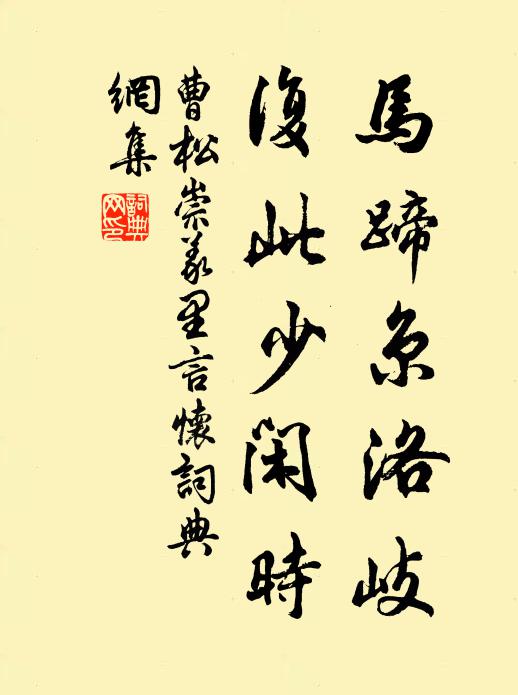 馬蹄京洛岐
復此少閑時
曹松崇義里言懷詞典
網集
詞典
网印